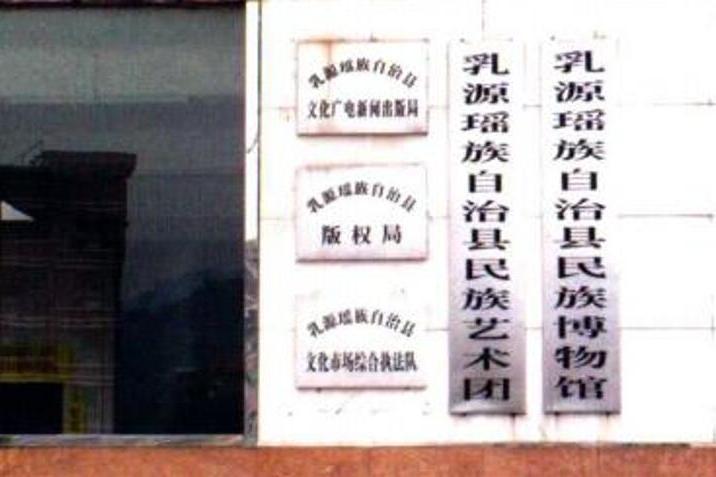 乳源瑶族自治县
文化广电新闻出版局
乳源瑶族自治县
版权局
乳源瑶族自治县
文化市场综合执法队
乳源瑶族自治县民族艺术团
乳源瑶族自治县民族博物馆